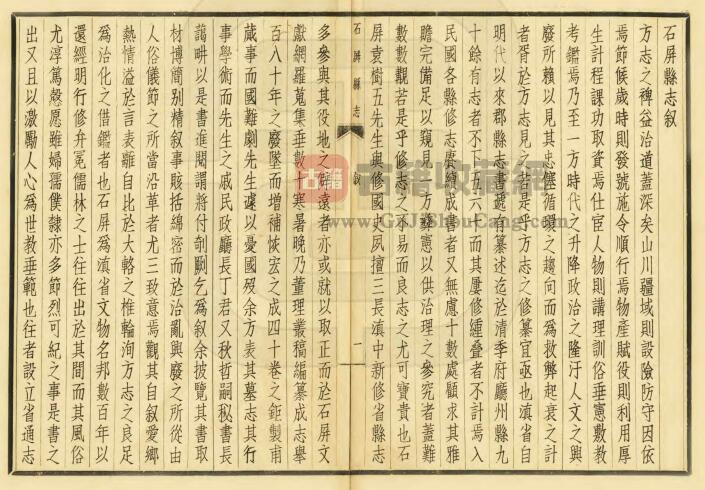 石屏縣志叙
方志之裨益治道蓋深矣山川疆域則設險防守因依
焉節候歲時則發號施令順行焉物產賦役則利用厚
生計程課功取資焉仕宦人物則講理訓俗垂憲敷教
考鑑焉乃至一方時代之升降政治之隆汙人文之興
廢所賴以見其忠循環之趨向而為救弊起衰之計
者胥於方志見之若是乎方志之修纂宜亟也滇省自
明代以來郡縣志書遞有纂述迄於清季府廳州縣九
十餘有志者不一五六十而其屢修緟叠者不計焉入
民國各縣修志賡續成書者又無慮十數處顧求其雅
贍完備足以窺見一方憲以供治理之參究者蓋難
數數觀若是乎修志之不易而良志之尤可寶貴也石
屏袁樹五先生與修國史夙擅三長滇中新修省縣志
石屏縣志
叙
一
多參與其役地之遠者亦或就以取正而於石屏文
獻網羅蒐集垂數十寒暑晚乃董理叢稿編纂成志舉
百八十年之廢墜而增補恢宏之成四十卷之鉅製甫
蕆事而國難劇先生遽以憂國歿余方表其墓志其行
事學術而先生之戚民政廳長丁君又秋哲嗣秘書長
藹畊以是書進閱謂將付剞劂乞為叙余披覽其書取
材博簡別精叙事賅括綿密而於治亂興廢之所從由
人俗儀節之所當沿革者尤三致意焉觀其自叙愛鄉
熱情溢於言表雖自比於大輅之椎輪洵方志之良足
為治化之借鑑者也石屏為滇省文物名邦數百年以
還經明行修弁冕儒林之士往往出於其間而其風俗
尤淳篤慤愿雖婦孺僕隸亦多節烈可紀之事是書之
出又且以激勵人心為世教垂範也往者設立省通志
古籍
古籍收藏網
www.GuJiShouCang.com